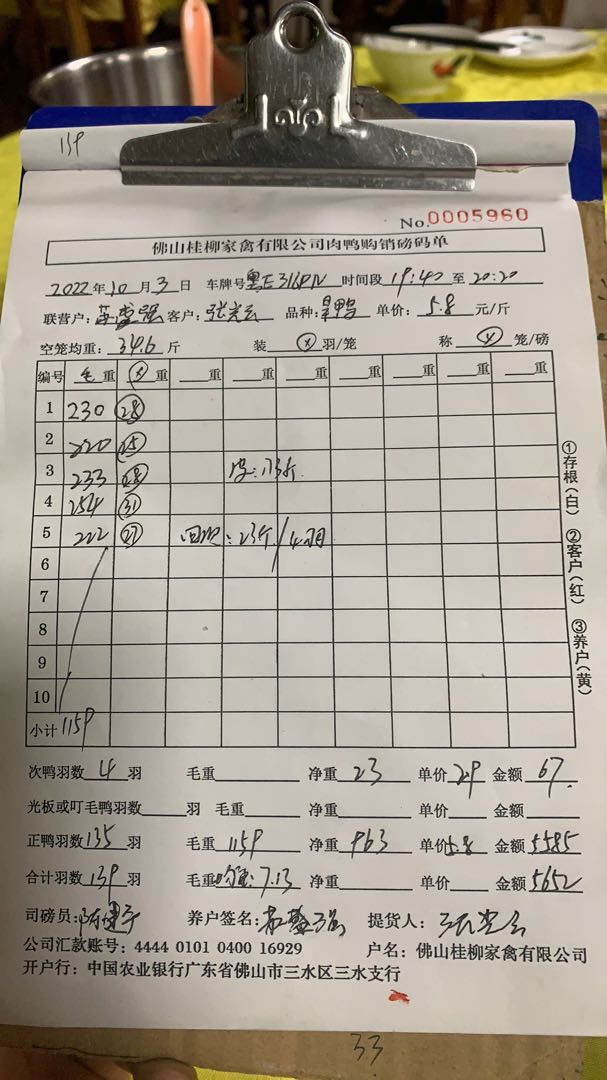 139
No.0005960
佛山桂柳家禽有限公司肉鸭购销磅码单
2022年10月3日 车牌号粤E316PN 时间段19:40至20:20
联营户: 苏盛强 客户: 张光云 品种: 鸭 单价: 5.8元/斤
空笼均重: 34.6斤 装 羽/笼 称 笼/磅
编号 毛重 重 重 重 重 重 重 重 重
1 230 28
2 220 25
3 233 28 皮:173斤
4 254 31
5 222 27 回次: 23斤/4羽
6
7
8
9
10
小计 1159
①存根(白) ②客户(红) ③养户(黄)
次鸭羽数4羽 毛重 净重23 单价2.9 金额67
光板或叮毛鸭羽数 羽 毛重 净重 单价 金额
正鸭羽数135羽 毛重1159 净重963 单价5.8 金额5585
合计羽数139羽 毛重 7.13 净重 单价 金额5652
司磅员: 养户签名: 苏盛强 提货人: 张光云
公司汇款账号: 4444 0101 0400 16929 户名: 佛山桂柳家禽有限公司
开户行: 中国农业银行广东省佛山市三水区三水支行
33